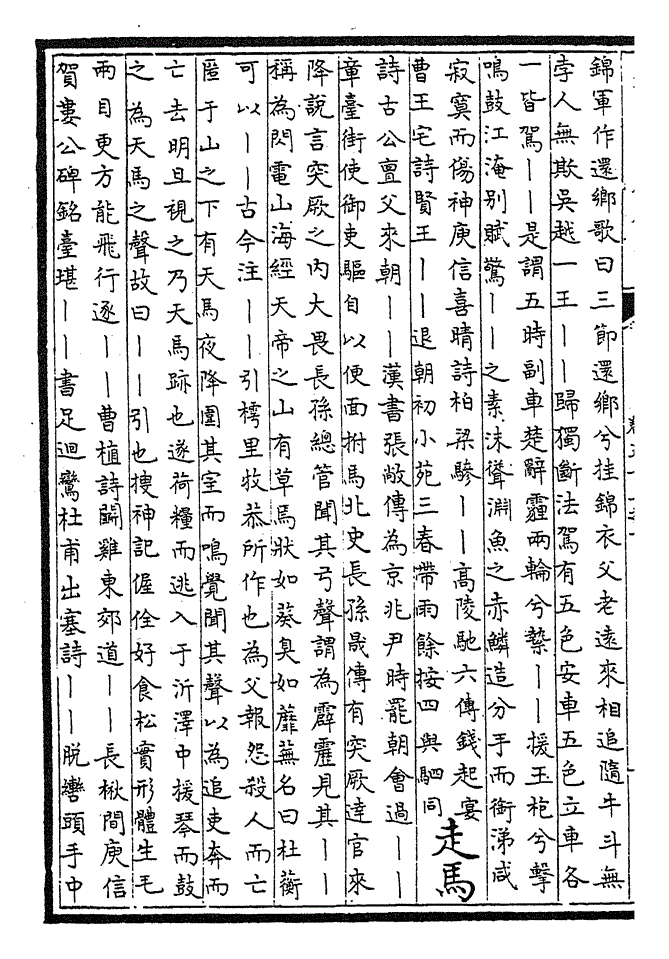 錦軍作還鄉歌曰三節還鄉兮挂錦衣父老遠來相追隨牛斗無
孛人無欺吳越一王丨丨歸獨斷法駕有五色安車五色立車各
一皆駕丨丨是謂五時副車楚辭霾兩輪兮縶丨丨援玉枹兮擊
鳴鼓江淹别賦驚丨丨之素沫聳淵魚之赤鱗造分手而銜涕咸
寂寞而傷神庾信喜晴詩柏梁驂丨丨高陵馳六傳錢起宴
曹王宅詩賢王丨丨退朝初小苑三春帶雨餘按四與駟同
走馬
詩古公亶父來朝丨丨漢書張敞傳為京兆尹時罷朝會過丨丨
章臺街使御吏驅自以便面拊馬北史長孫晟傳有突厥達官來
降説言突厥之内大畏長孫總管聞其弓聲謂為霹靂見其丨丨
稱為閃電山海經天帝之山有草焉狀如葵臭如蘼蕪名曰杜蘅
可以丨丨古今注丨丨引樗里牧恭所作也為父報怨殺人而亡
匿于山之下有天馬夜降圍其室而鳴覺聞其聲以為追吏奔而
亡去明旦視之乃天馬跡也遂荷糧而逃入于沂澤中援琴而鼓
之為天馬之聲故曰丨丨引也搜神記偓佺好食松實形體生毛
兩目更方能飛行逐丨丨曹植詩鬬雞東郊道丨丨長楸間庾信
賀婁公碑銘臺堪丨丨書足迴鸞杜甫出塞詩丨丨脱轡頭手中